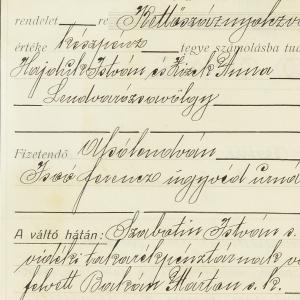 rendelet re Kettőszáznyolczva
értéke készpénz tegye számolásba tud
Hajdúk István és Kizek Anna
Lendvarózsavölgy
Fizetendő Alsólendván
Isoó ferencz ügyvéd urnd
A váltó hátán: Szabatin István s.
vidéki takarékpénztárnak v
felvett Bakán Márton s. k.